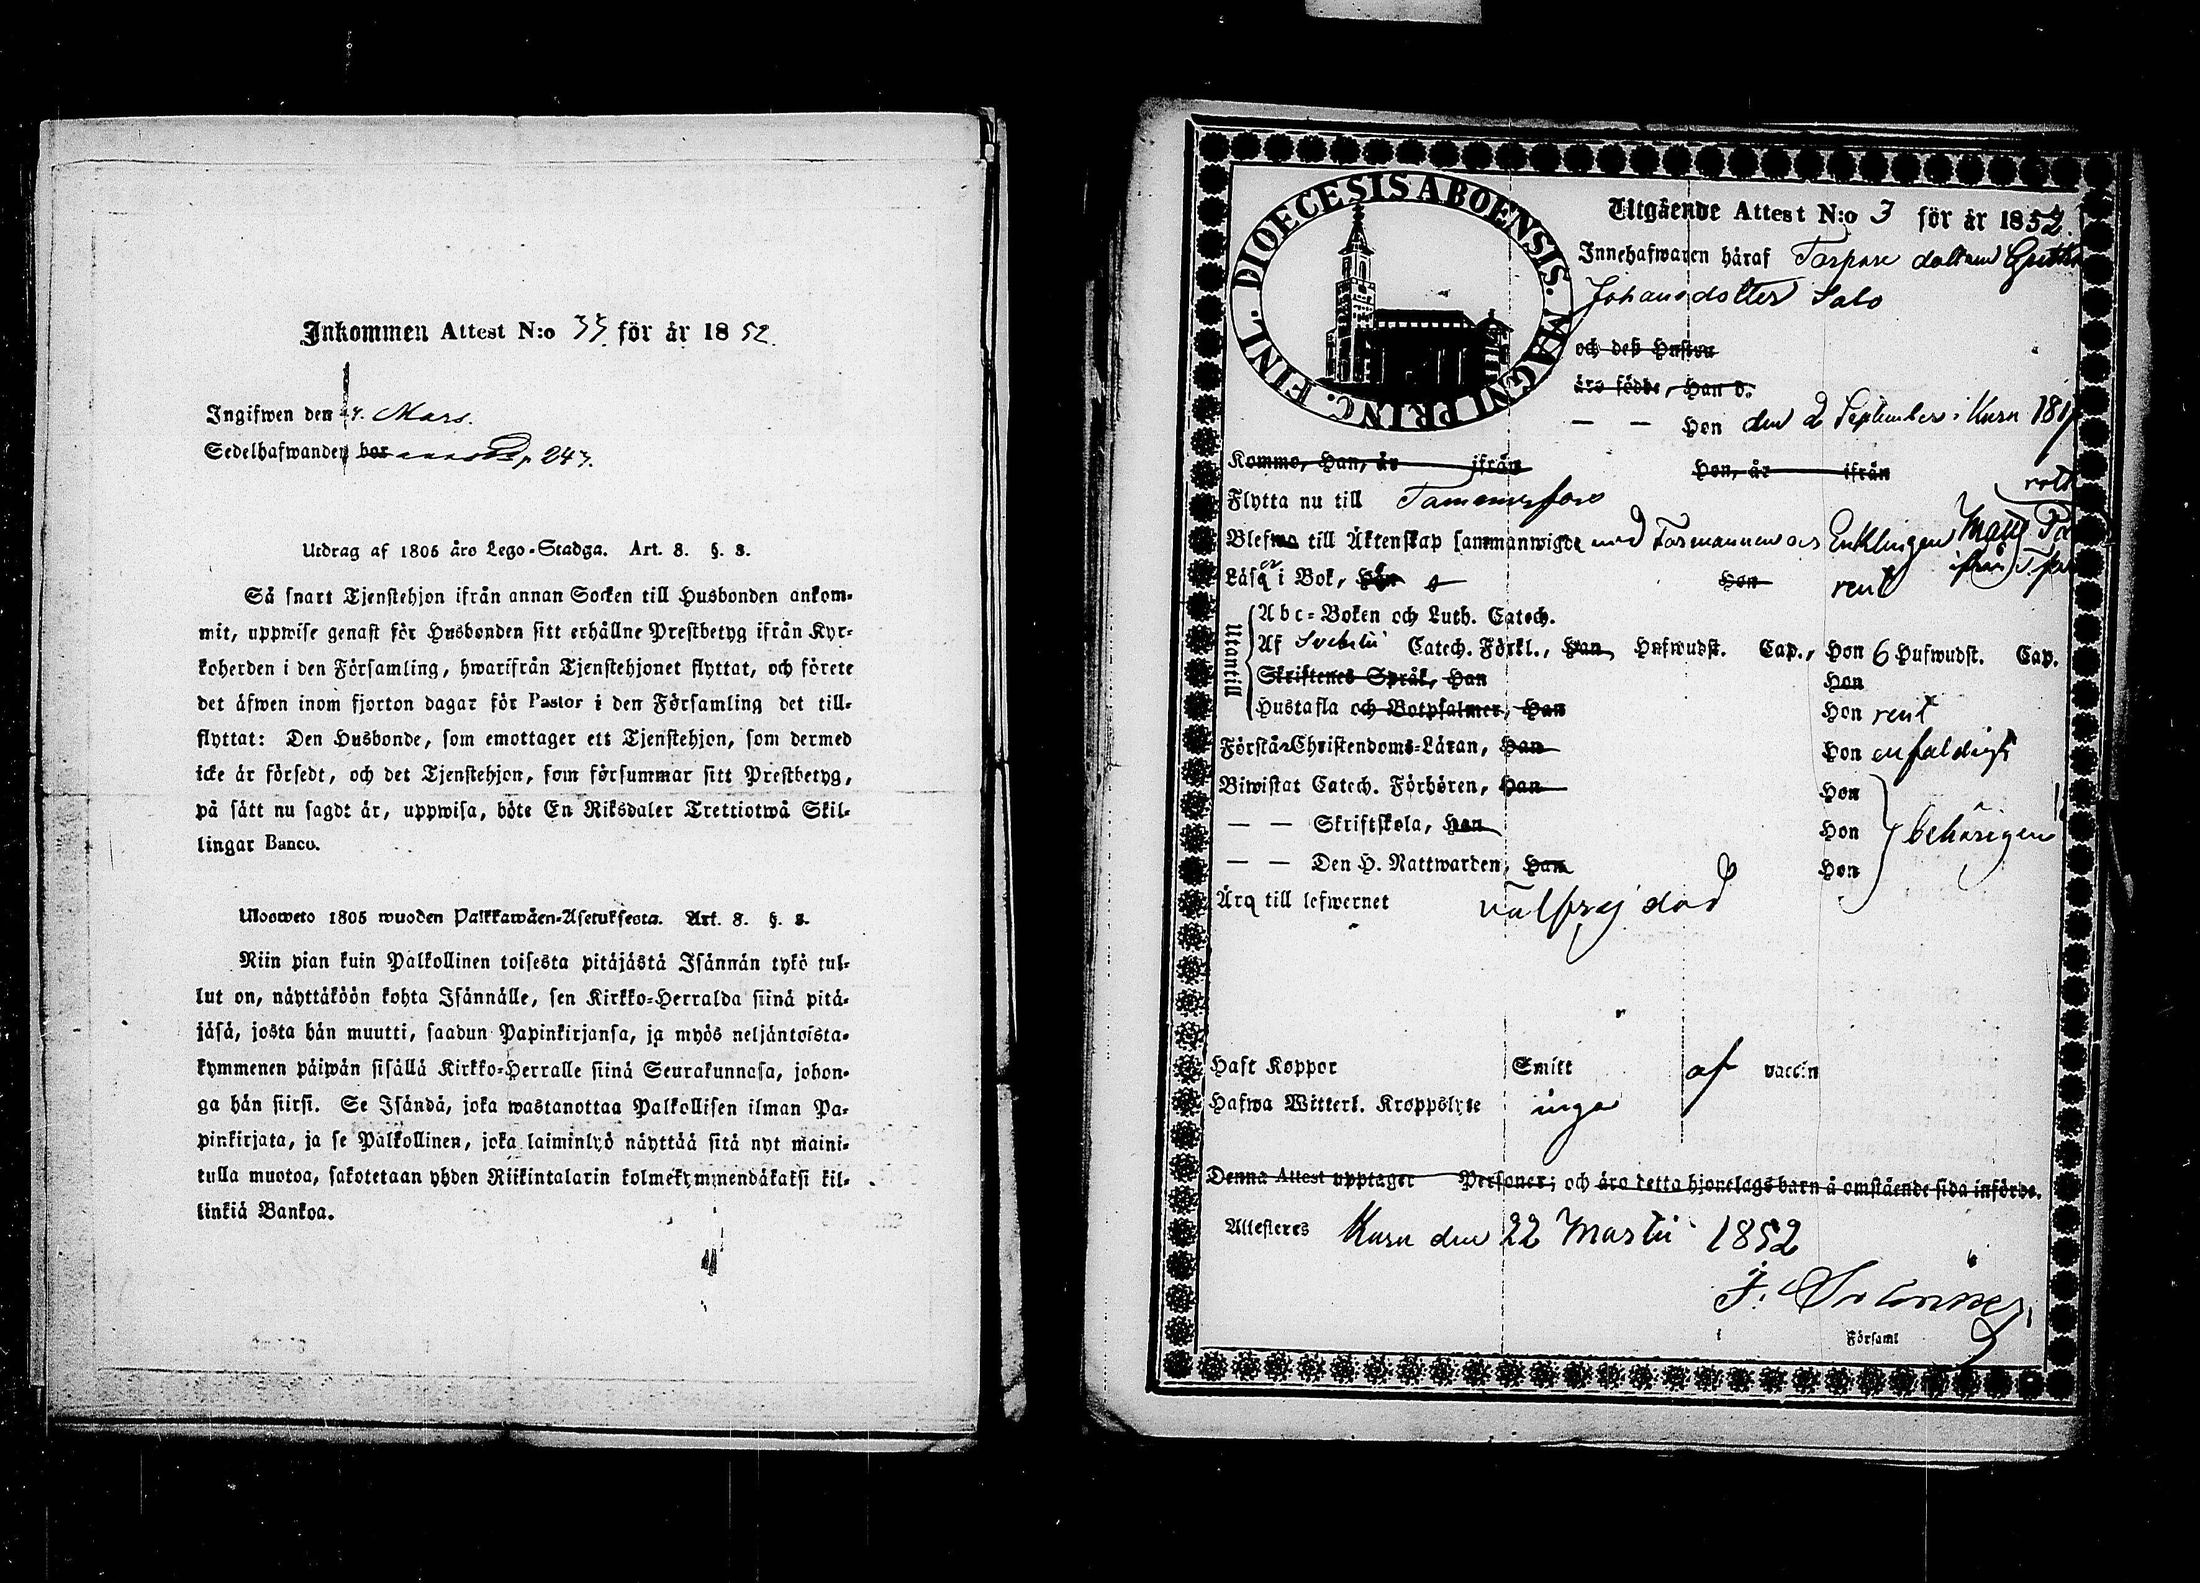 Inkommen Attest N:o 35 för år 1852.
Ingifwen den 4. Mars.
Sedelhafwanden bor p. 247.
Utdrag af 1805 års Lego-Stadga. Art. 8. §. 8.
Så snart Tjenstehjon ifrån annan Socken till Husbonden ankom-
mit, uppwise genast för Husbonden sitt erhållne Prestbetyg ifrån Kyr-
koherden i den Församling, hwarifrån Tjenstehjonet flyttat, och förete
det äfwen inom fjorton dagar för Pastor i den Församling det till-
flyttat: Den Husbonde, som emottager ett Tjenstehjon, som dermed
icke är försedt, och det Tjenstehjon, som försummar sitt Prestbetyg,
på sätt nu sagdt är, uppwisa, böte En Riksdaler Trettiotwå Skil-
lingar Banco.
Ulosweto 1805 wuoden Palkkawäen-Asetuksesta. Art. 8. §. 8.
Niin pian kuin Palkollinen toisesta pitäjästä Isännän tykö tul-
lut on, näyttäköön kohta Isännälle, sen Kirkko-Herralda siinä pitä-
jäsä, josta hän muutti, saadun Papinkirjansa, ja myös neljäntoista-
kymmenen päiwän sisällä Kirkko-Herralle siinä Seurakunnasa, johon-
ga hän siirsi. Se Isändä, joka wastanottaa Palkollisen ilman Pa-
pinkirjata, ja se Palkollinen, joka laiminlyö näyttää sitä nyt maini-
tulla muotoa, sakotetaan yhden Riikintalarin kolmekymmendäkaksi kil-
linkiä Bankoa.
DIOECESIS ABOENSIS. MAGNI PRINC. FINL.
Utgående Attest N:o 3 för år 1852.
Innehafwaren häraf Torpare dottren Greta
Johansdotter Salo
och deß Hustru
äro födde, Han d.
— — Hon den 2 September i Kuru 181
Komme, Han, år ifrån Hon, år ifrån
Flytta nu till Tammerfors
Blefwo till Äktenskap sammanwigde med Formannen och Enklingen Matts
ifrån T.fors
Läsa i Bok, Han Hon rent
Utantill
Abc-Boken och Luth. Catech.
Af Svebelii Catech. Förkl., Han Hufwudst. Cap., Hon 6 Hufwudst. Cap.
Skriftenes Språk, Han Hon
Hustafla och Botpsalmer, Han Hon rent
Förstå Christendoms-Läran, Han Hon enfaldigt
Biwistat Catech. Förhören, Han Hon
— — Skriftskola, Han Hon behörigen
— — Den H. Nattwarden, Han Hon
Äro till lefwernet välfrejdad
Haft Koppor Smitt af vaccin
Hafwa Witterl. Kroppslyte inga
Denna Attest upptager Personer; och äro detta hjonelags barn å omstående sida införde.
Attesteres Kuru den 22 Martii 1852
Församl